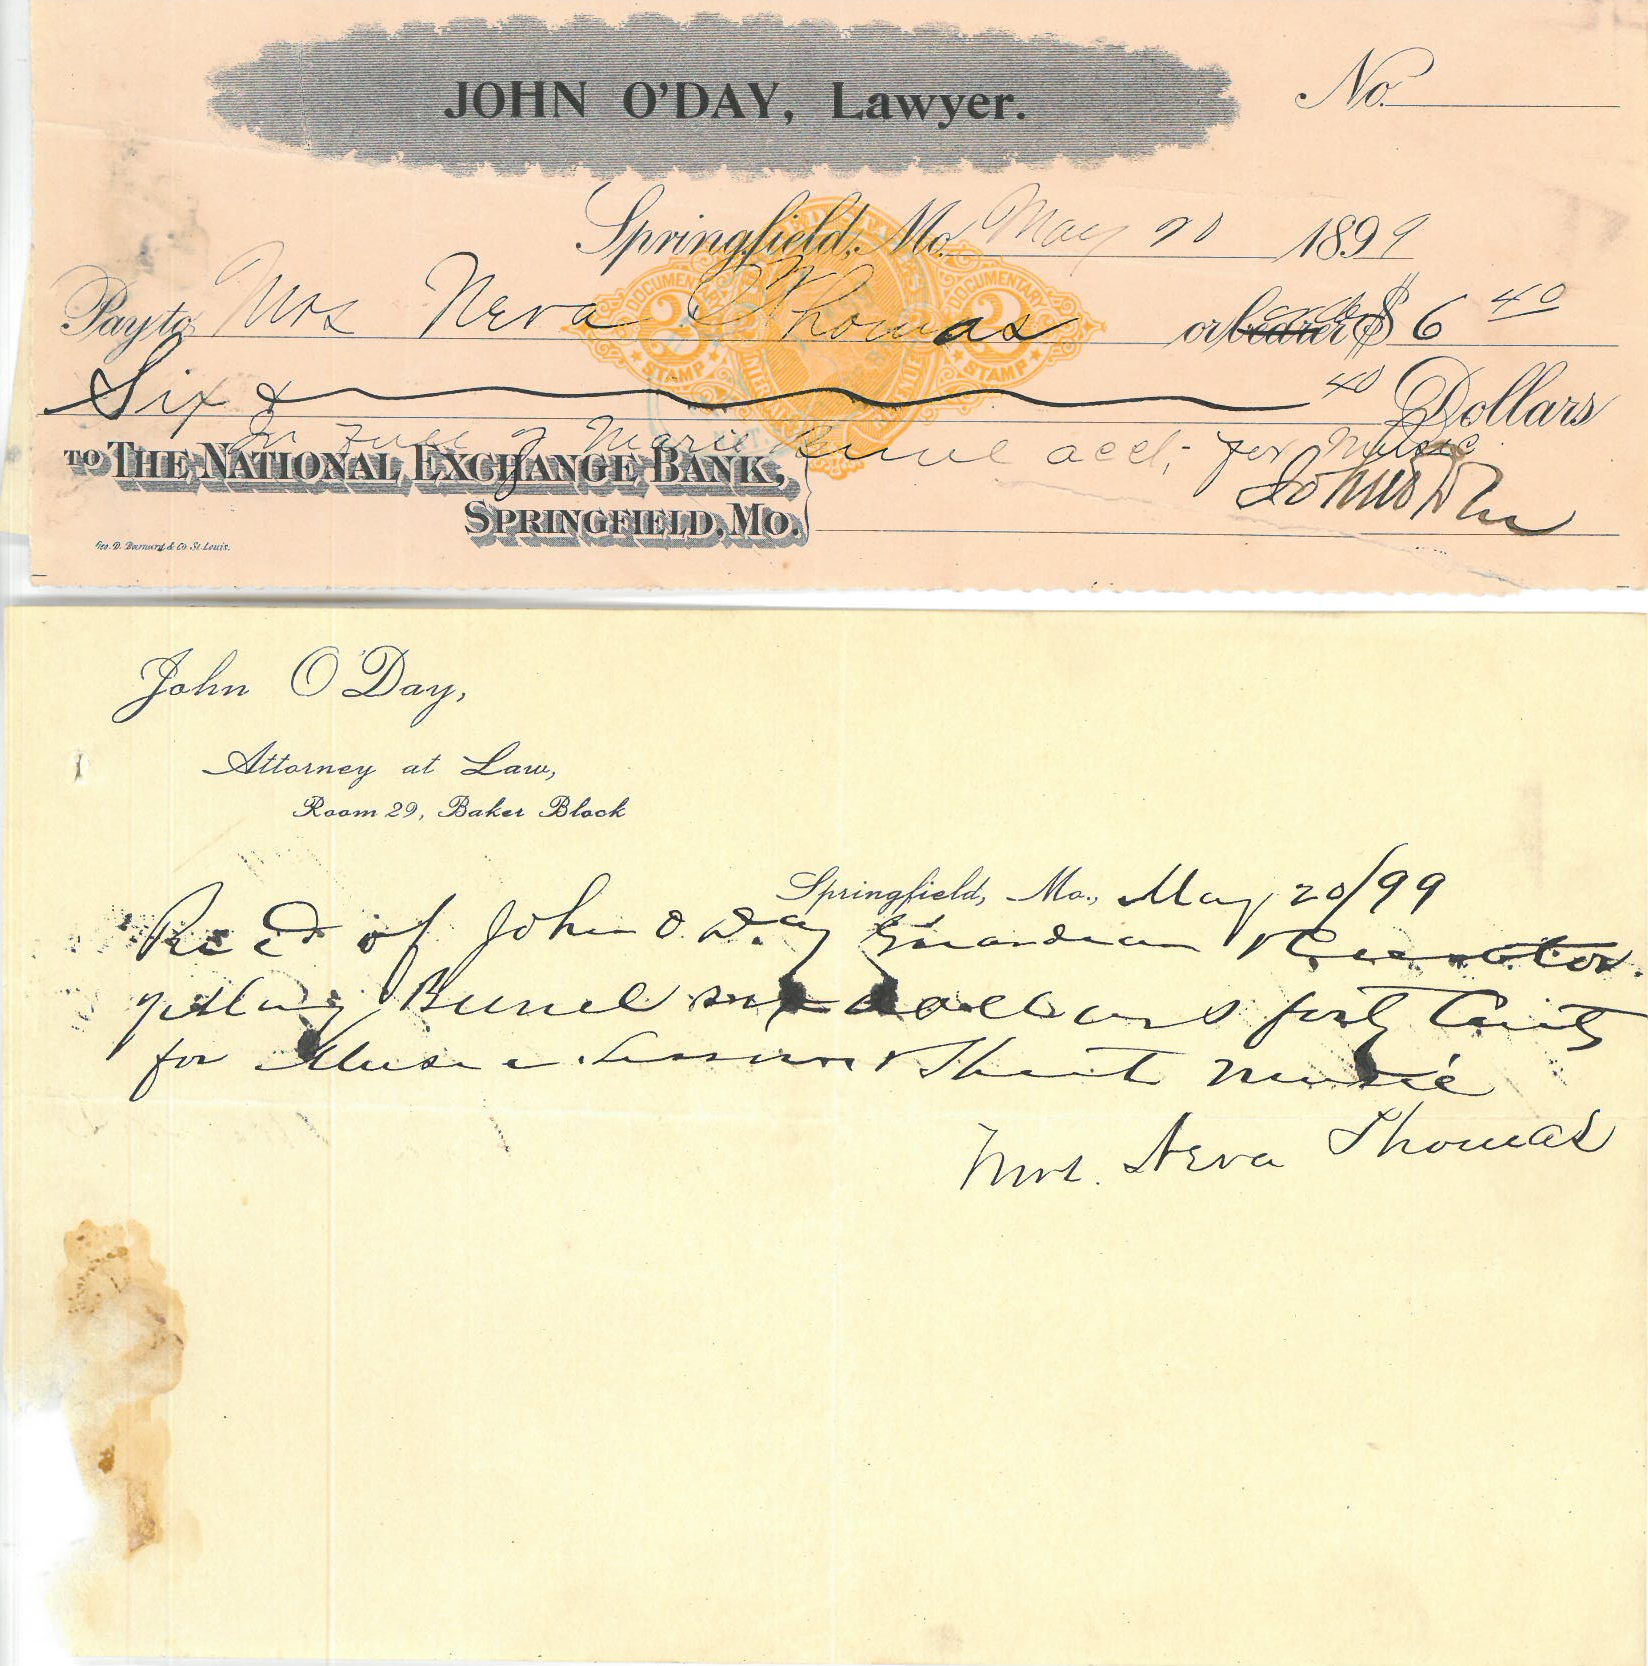 JOHN O'DAY, Lawyer.
No.
Springfield, Mo. May 20 1899
DOCUMENTARY DOCUMENTARY
2 2
STAMP STAMP
Pay to Mrs Neva Thomas or bearer order $ 6 40
Six & 40 Dollars
In Full of Marie acct, for Music
TO THE NATIONAL EXCHANGE BANK,
SPRINGFIELD, MO.
Geo. D. Barnard & Co. St. Louis.
John O'Day,
Attorney at Law,
Room 29, Baker Block
Springfield, Mo., May 20/99
Rec'd of John O'Day Guardian & Curator
of Mary Bunel six dollars forty Cents
for Music Lessons & Sheet Music
Mrs. Neva Thomas